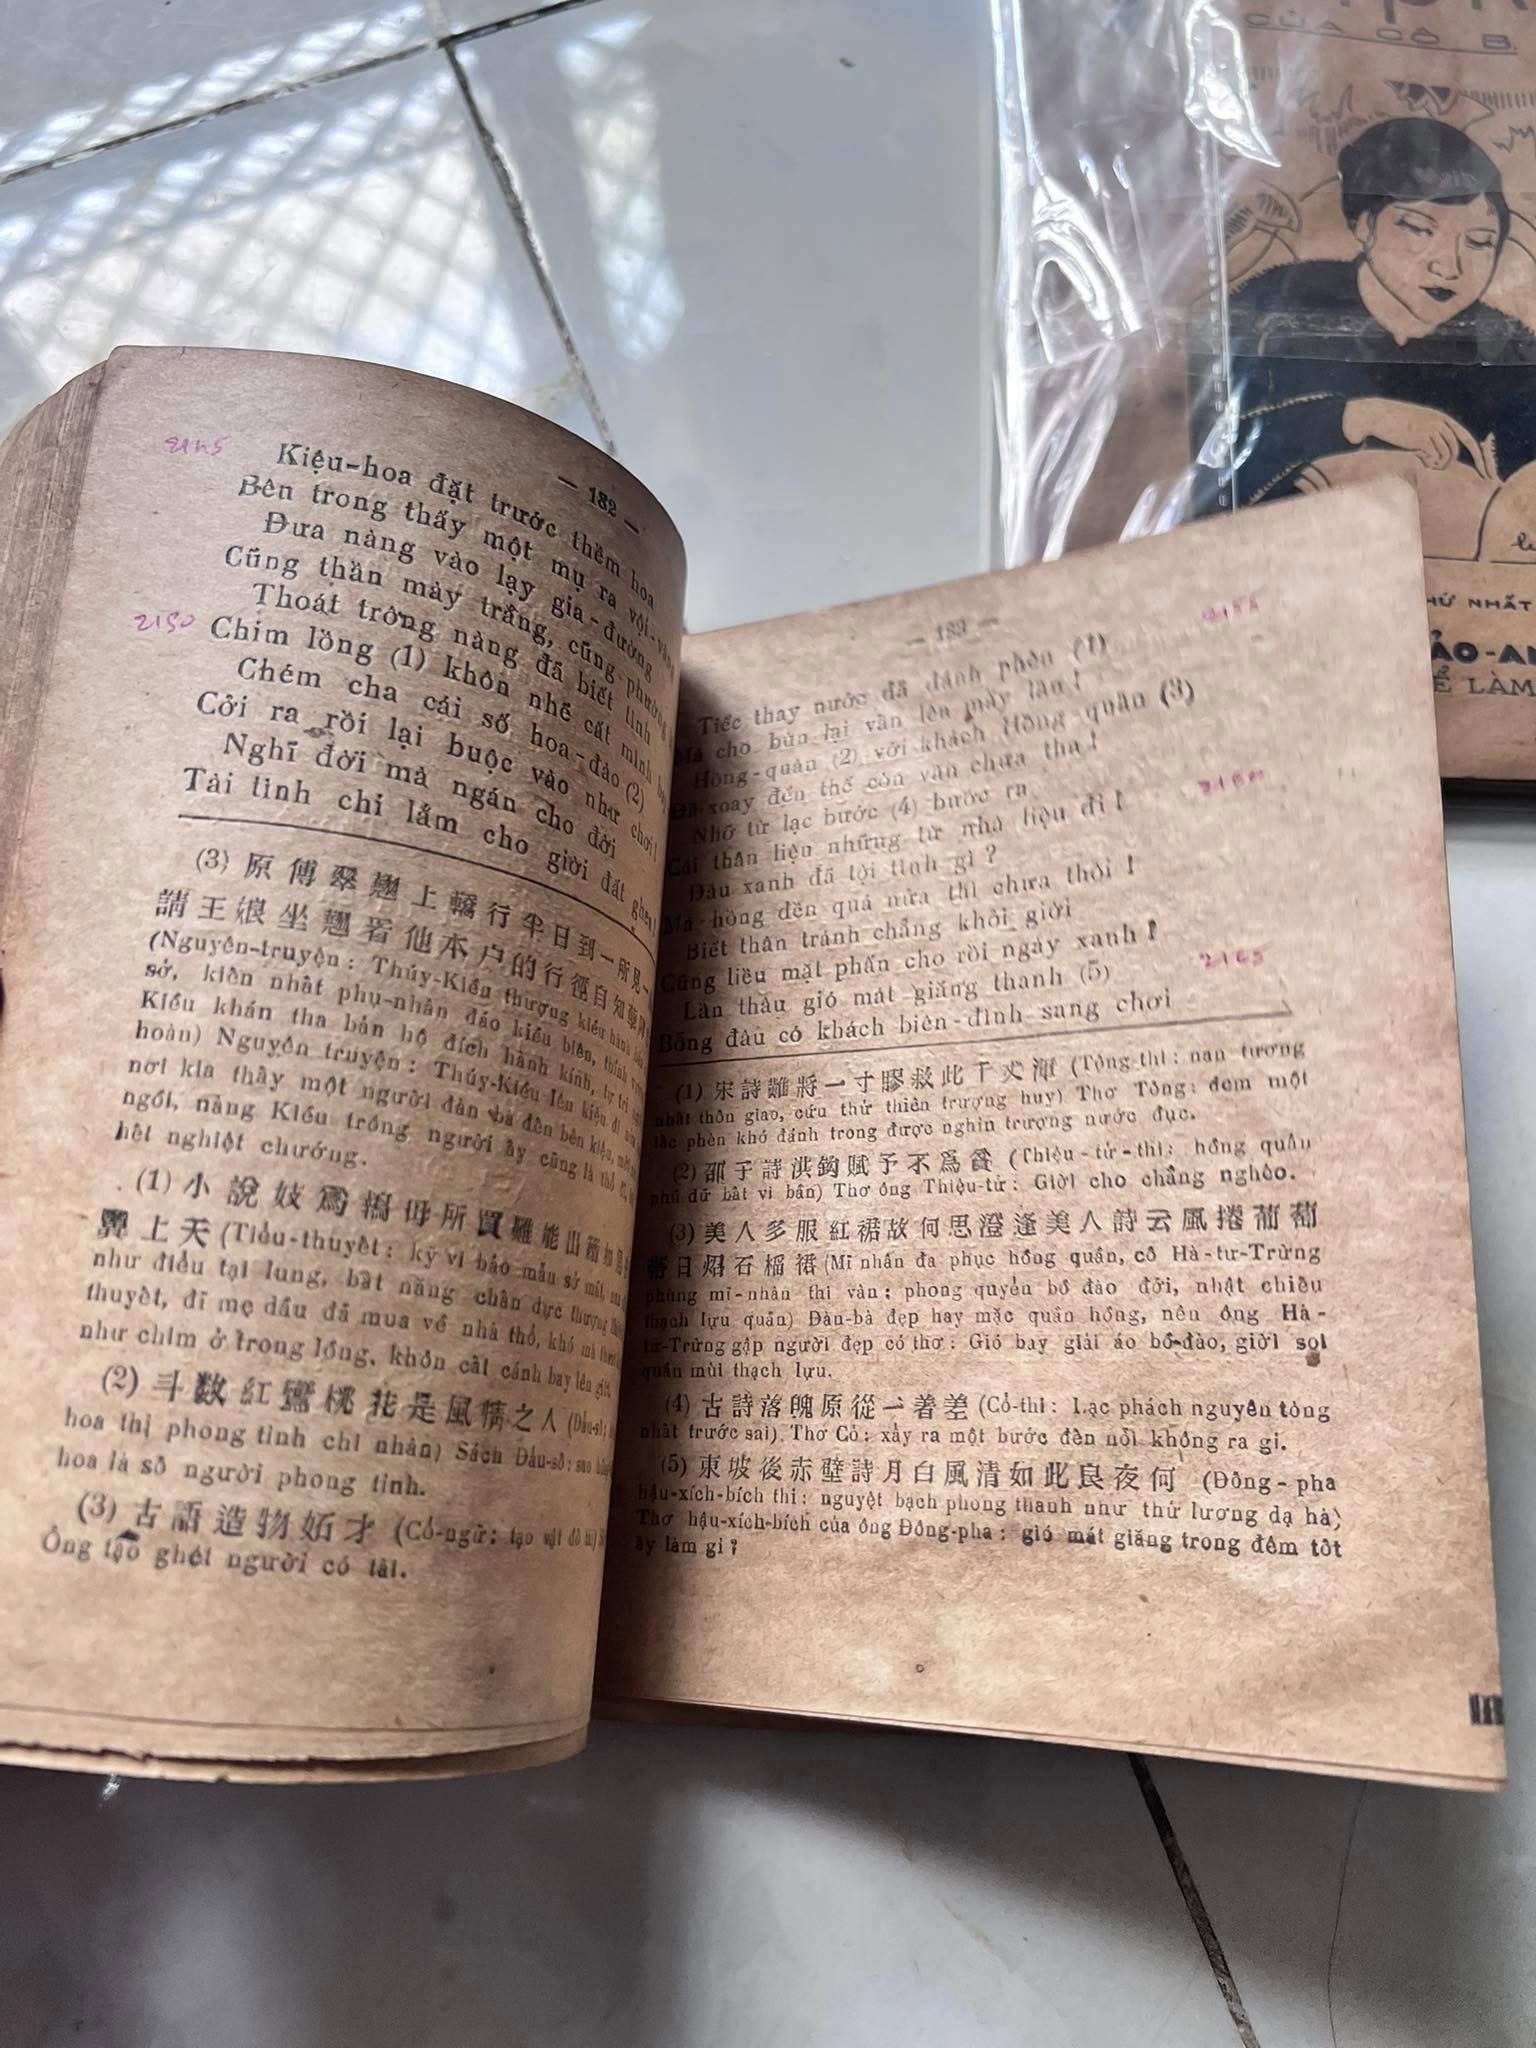 — 182 —
2145
Kiệu-hoa đặt trước thềm hoa
Bên trong thấy một mụ ra vội-vàng
Đưa nàng vào lạy gia-đường
Cũng thần mày trắng, cũng phường
Thoát trông nàng đã biết tình
2150
Chim lồng (1) khôn nhẽ cất mình
Chém cha cái số hoa-đào (2)
Cởi ra rồi lại buộc vào như chơi!
Nghĩ đời mà ngán cho đời
Tài tình chi lắm cho giời đất ghen!
(3) 原傳翠翹上轎行半日到一所見一
請王娘坐翹看他本戶的行徑自知
(Nguyên-truyện: Thúy-Kiều thượng kiều hành
sở, kiến nhất phụ-nhân đáo kiều biên, thỉnh
Kiều khán tha bản hộ đích hành kính, tự tri
hoàn) Nguyên truyện: Thúy-Kiều lên kiệu đi
nơi kia thấy một người đàn bà đến bên kiệu, mời
ngồi, nàng Kiều trông người ấy cũng là thổ
hết nghiệt chướng.
(1) 小說妓爲鴇母所買難能出籠如鳥
翼上天 (Tiểu-thuyết: kỹ vi bảo mẫu sở mãi,
như điểu tại lung, bất năng chấn dực thượng
thuyết, đĩ mẹ dầu đã mua về nhà thổ, khó mà
như chim ở trong lồng, khôn cất cánh bay lên giời.
(2) 斗數紅鸞桃花是風情之人 (Đẩu-số:
hoa thị phong tình chi nhân) Sách Đẩu-số: sao
hoa là số người phong tình.
(3) 古語造物妬才 (Cổ-ngữ: tạo vật đố tài)
Ông tạo ghét người có tài.
— 183 —
2155
Tiếc thay nước đã đánh phèn (1)
Mà cho bùn lại vẩn lên mấy lần!
Hồng-quân (2) với khách Hồng-quần (3)
Đã xoay đến thế còn vần chưa tha!
Nhỡ từ lạc bước (4) bước ra
2160
Cái thân liệu những từ nhà liệu đi!
Đầu xanh đã tội tình gì?
Má-hồng đến quá nửa thì chưa thôi!
Biết thân tránh chẳng khỏi giời
Cũng liều mặt phấn cho rồi ngày xanh!
2165
Lần thâu gió mát giăng thanh (5)
Bỗng đâu có khách biên-đình sang chơi
(1) 宋詩難將一寸膠救此千丈渾 (Tống-thi: nan tương
nhất thốn giao, cứu thử thiên trượng huy) Thơ Tống: đem một
tấc phèn khó đánh trong được nghìn trượng nước đục.
(2) 邵子詩洪鈞賦予不爲貧 (Thiệu-tử-thi: hồng quân
phú dữ bất vi bần) Thơ ông Thiệu-tử: Giời cho chẳng nghèo.
(3) 美人多服紅裙故何思澄逢美人詩云風捲葡萄
帶日炤石榴裙 (Mĩ nhân đa phục hồng quần, cố Hà-tư-Trừng
phùng mĩ-nhân thi vân: phong quyển bồ đào đới, nhật chiếu
thạch lựu quần) Đàn-bà đẹp hay mặc quần hồng, nên ông Hà-
tư-Trừng gặp người đẹp có thơ: Gió bay giải áo bồ-đào, giời soi
quần mùi thạch lựu.
(4) 古詩落魄原從一着差 (Cổ-thi: Lạc phách nguyên tòng
nhất trước sai). Thơ Cổ: xảy ra một bước đến nỗi không ra gì.
(5) 東坡後赤壁詩月白風清如此良夜何 (Đông-pha
hậu-xích-bích thi: nguyệt bạch phong thanh như thử lương dạ hà)
Thơ hậu-xích-bích của ông Đông-pha: gió mát giăng trong đêm tốt
ấy làm gì?
CỦA CÔ B
HỨ NHẤT
ẢO-AN
Ể LÀM